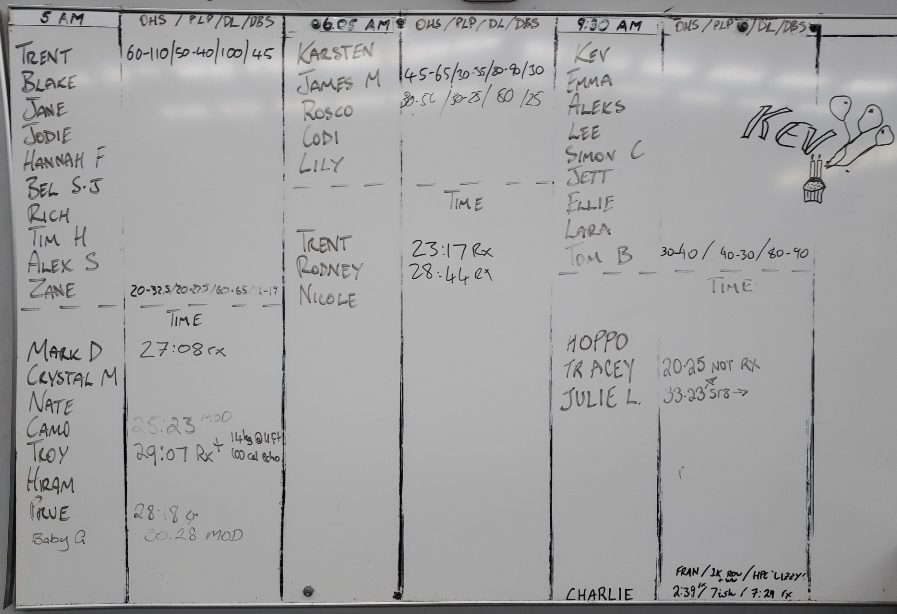 5 AM OHS / PLP / DL / DBS
TRENT 60-110/50-40/100/45
BLAKE
JANE
JODIE
HANNAH F
BEL S.J
RICH
TIM H
ALEX S
ZANE 20-32.5/20-27.5/60-65/12-17
TIME
MARK D 27:08 rx
CRYSTAL M
NATE
CAMO 25:23 MOD
TROY 29:07 Rx + 14kg @ 11ft
100 cal echo
HIRAM
PRUE 28:18
Baby G 30.28 MOD
6.05 AM OHS / PLP / DL / DBS
KARSTEN
JAMES M 45-65/30-35/80-90/30
ROSCO /30-25/ 60 /25
CODI
LILY
TIME
TRENT 23:17 Rx
RODNEY 28:44 Rx
NICOLE
9:30 AM OHS / PLP / DL / DBS
KEV
EMMA
ALEKS
LEE
SIMON C
JETT
ELLIE
LARA
TOM B 30-40 / 40-30 / 80-90
TIME
HOPPO
TRACEY 20.25 NOT RX
JULIE L. 33.23
FRAN / 1K ROW / HPC "LIZZY"
CHARLIE 2:39 / 7ish / 7:29 rx
KEV